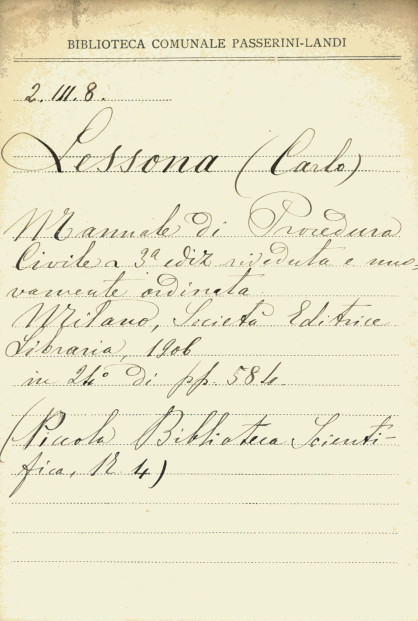 BIBLIOTECA COMUNALE PASSERINI-LANDI
2. III. 8.
Lessona (Carlo)
Manuale di Procedura
Civile 3ª ediz riveduta e nuo-
vamente ordinata
Milano, Società Editrice
Libraria, 1906
in 24° di pp. 584.
(Piccola Biblioteca Scienti-
fica, N 4)